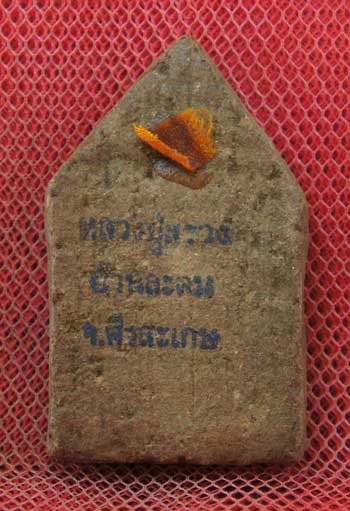 หลวงปู่สรวง
บ้านละลม
จ.ศีรสะเกษ